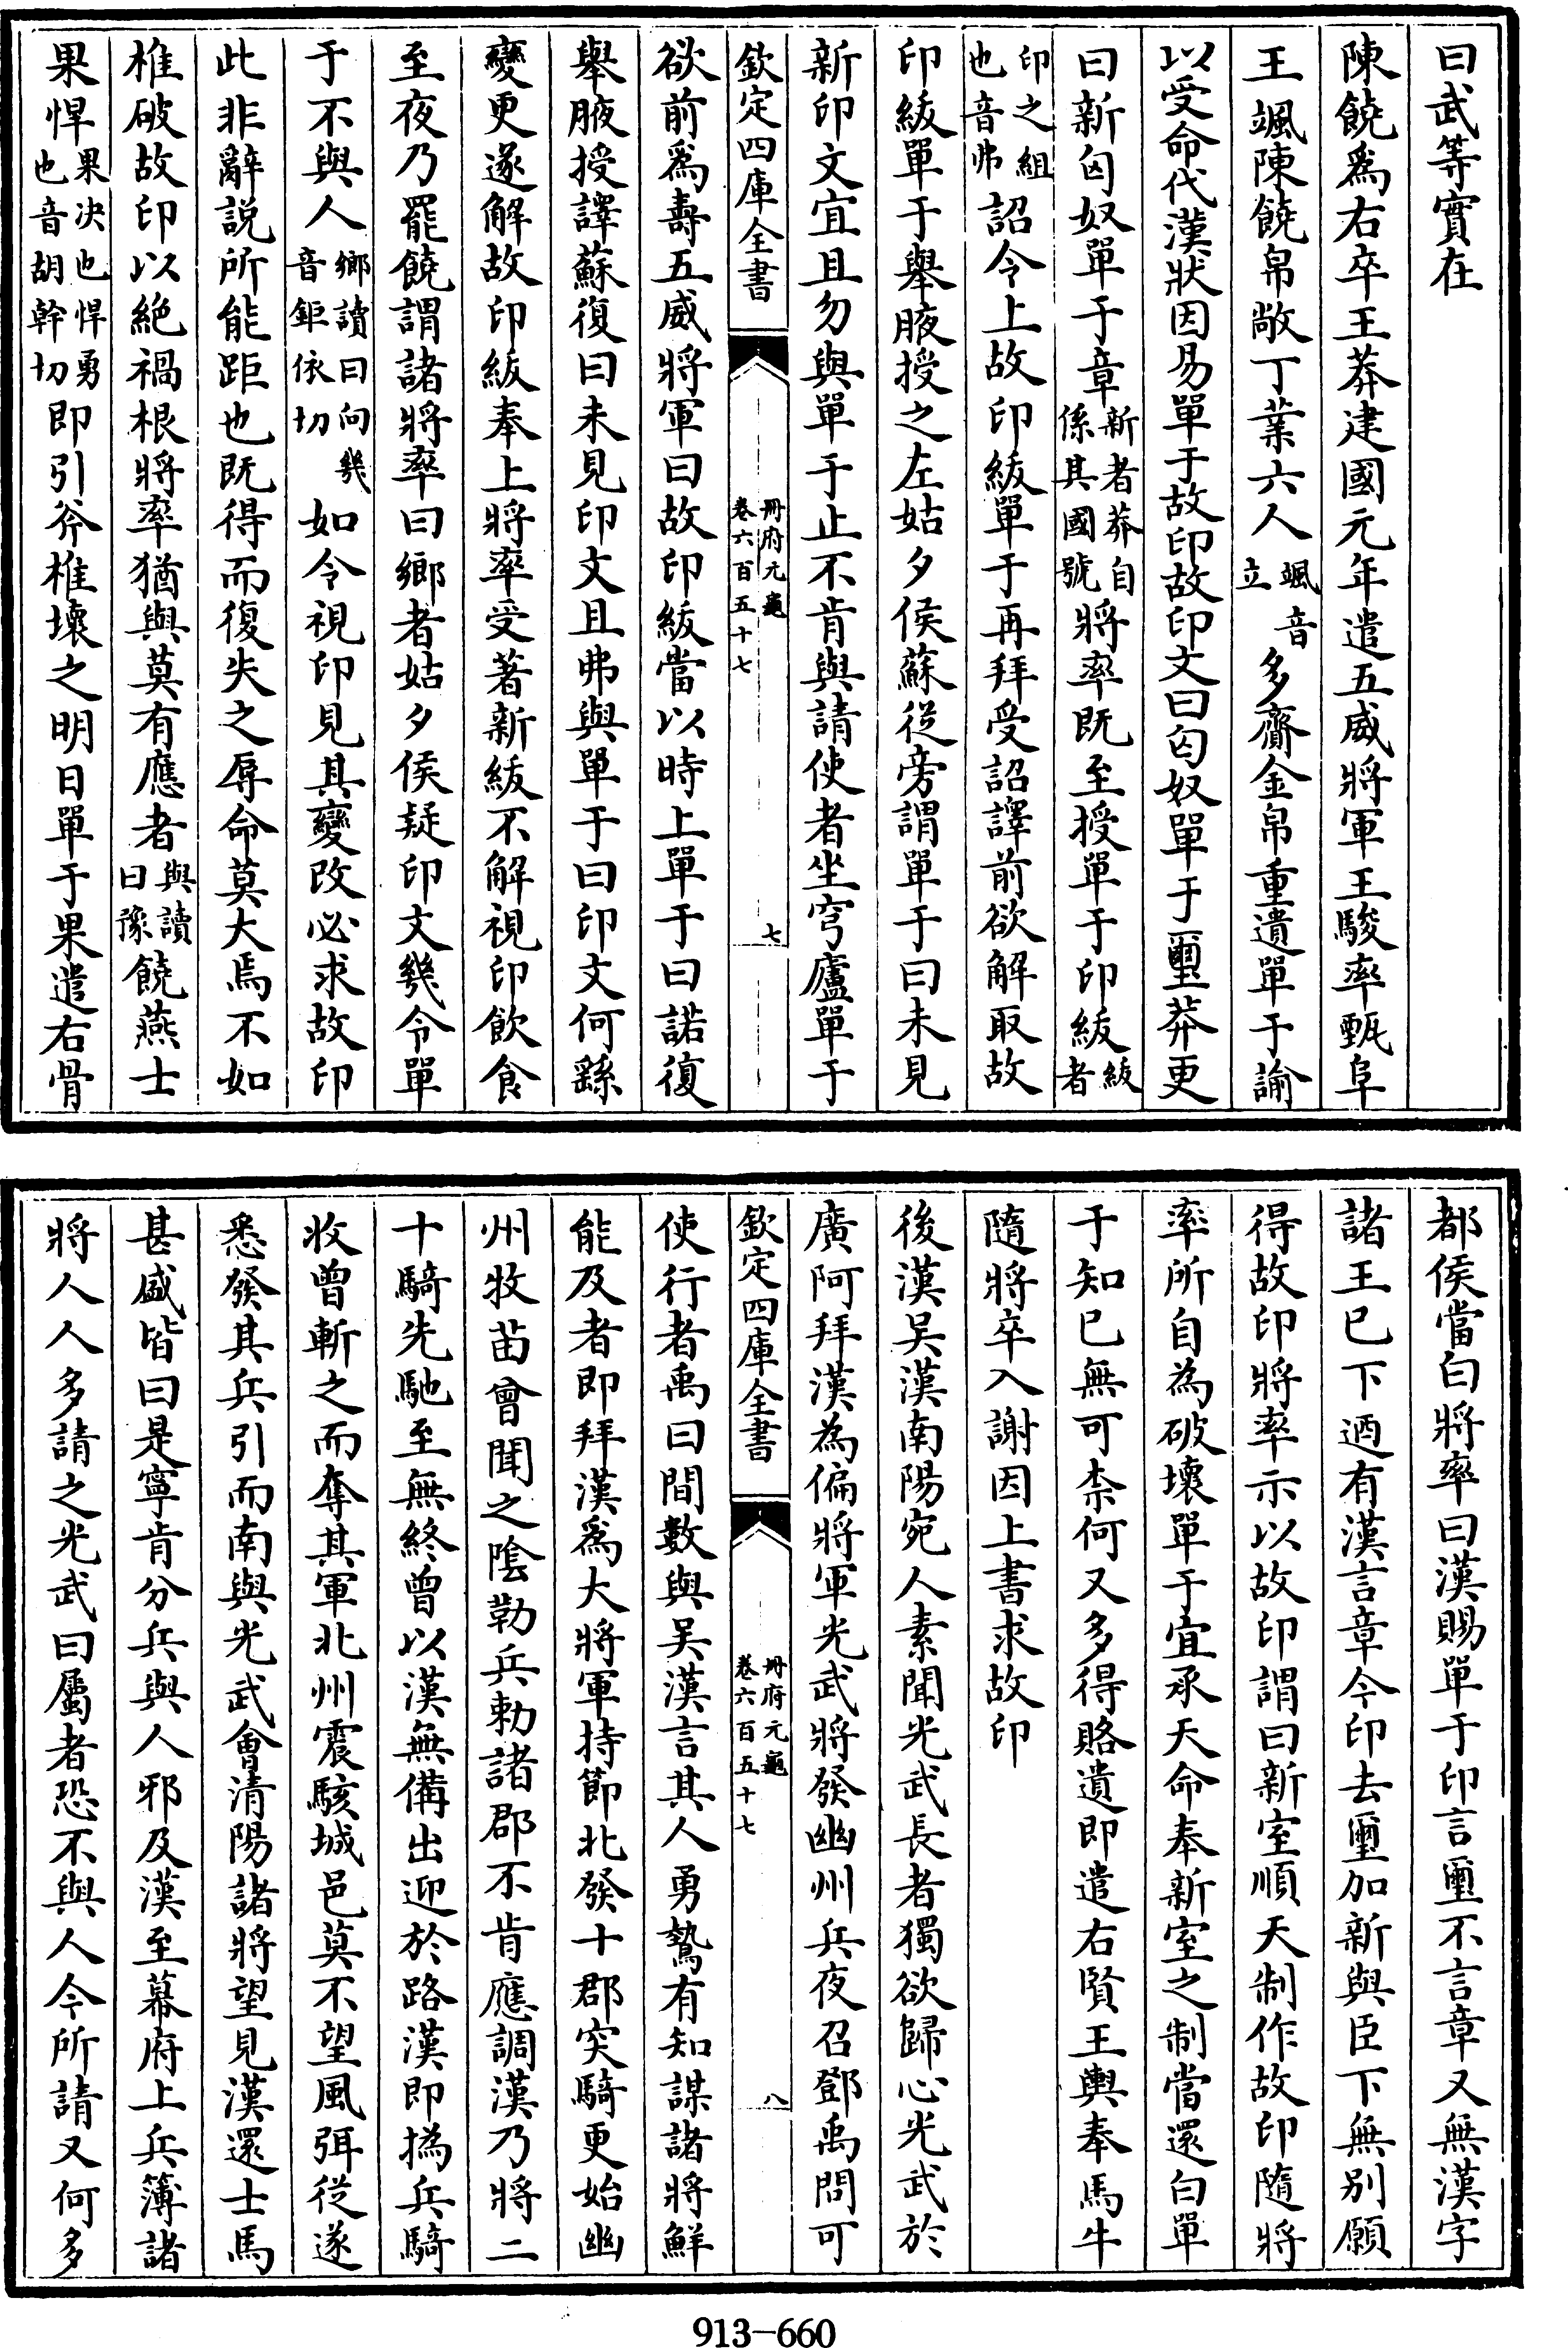 曰武等實在
陳饒爲右卒王莽建國元年遣五威將軍王駿率甄阜
王颯陳饒帛敞丁業六人颯音立多齎金帛重遺單于諭
以受命代漢狀因易單于故印故印文曰匈奴單于璽莽更
曰新匈奴單于章新者莽自係其國號將率既至授單于印紱紱者
印之組也音弗詔令上故印紱單于再拜受詔譯前欲解取故
印紱單于舉腋授之左姑夕侯蘇從旁謂單于曰未見
新印文宜且勿與單于止不肯與請使者坐穹廬單于
欽定四庫全書
冊府元龜
卷六百五十七
七
欲前爲壽五威將軍曰故印紱當以時上單于曰諾復
舉腋授譯蘇復曰未見印文且弗與單于曰印文何繇
變更遂解故印紱奉上將率受著新紱不解視印飲食
至夜乃罷饒謂諸將率曰鄉者姑夕侯疑印文幾令單
于不與人鄉讀曰向幾音鉅依切如令視印見其變改必求故印
此非辭說所能距也既得而復失之辱命莫大焉不如
椎破故印以絶禍根將率猶與莫有應者與讀曰豫饒燕士
果悍果决也悍勇也音胡幹切即引斧椎壞之明日單于果遣右骨
都侯當白將率曰漢賜單于印言璽不言章又無漢字
諸王已下迺有漢言章今印去璽加新與臣下無别願
得故印將率示以故印謂曰新室順天制作故印隨將
率所自為破壞單于宜承天命奉新室之制當還白單
于知已無可柰何又多得賂遺即遣右賢王輿奉馬牛
隨將卒入謝因上書求故印
後漢吳漢南陽宛人素聞光武長者獨欲歸心光武於
廣阿拜漢為偏將軍光武將發幽州兵夜召鄧禹問可
欽定四庫全書
冊府元龜
卷六百五十七
八
使行者禹曰間數與吳漢言其人勇鷙有知謀諸將鮮
能及者即拜漢爲大將軍持節北發十郡突騎更始幽
州牧苗曾聞之陰勒兵勅諸郡不肯應調漢乃將二
十騎先馳至無終曾以漢無備出迎於路漢即撝兵騎
收曾斬之而奪其軍北州震駭城邑莫不望風弭從遂
悉發其兵引而南與光武會清陽諸將望見漢還士馬
甚盛皆曰是寧肯分兵與人邪及漢至幕府上兵簿諸
將人人多請之光武曰屬者恐不與人今所請又何多
913-660